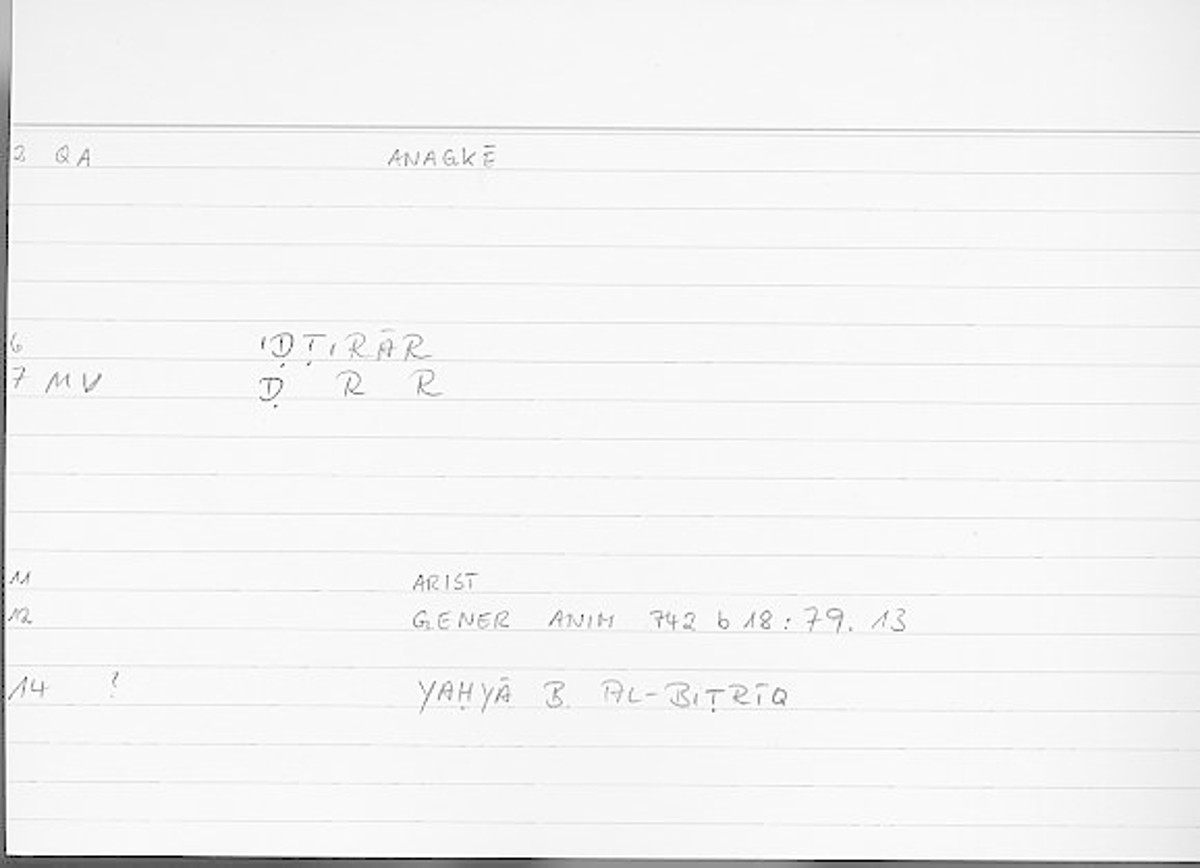 2 QA ANAGKĒ
6 IḌṬIRĀR
7 MV Ḍ R R
11 ARIST
12 GENER ANIM 742 b 18 : 79. 13
14 ? YAḤYĀ B. AL-BIṬRĪQ